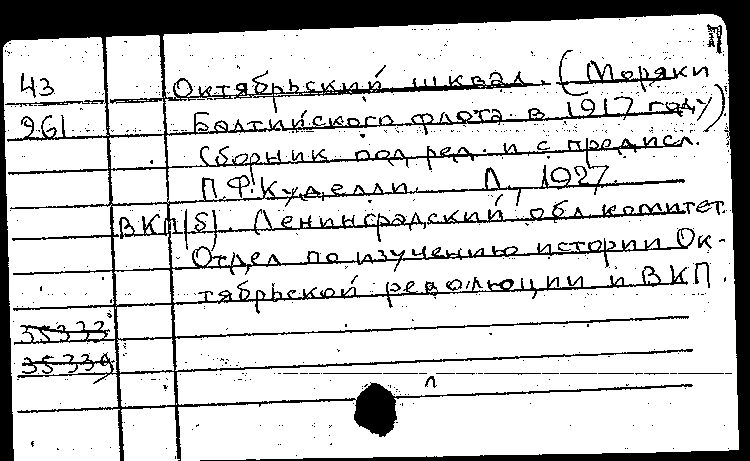 П
43 Октябрьский шквал. (Моряки
961 Балтийского флота в 1917 году)
Сборник под ред. и с предисл.
П.Ф. Куделли. Л., 1927.
ВКП(б). Ленинградский обл. комитет.
Отдел по изучению истории Ок-
тябрьской революции и ВКП.
35333
35339
л